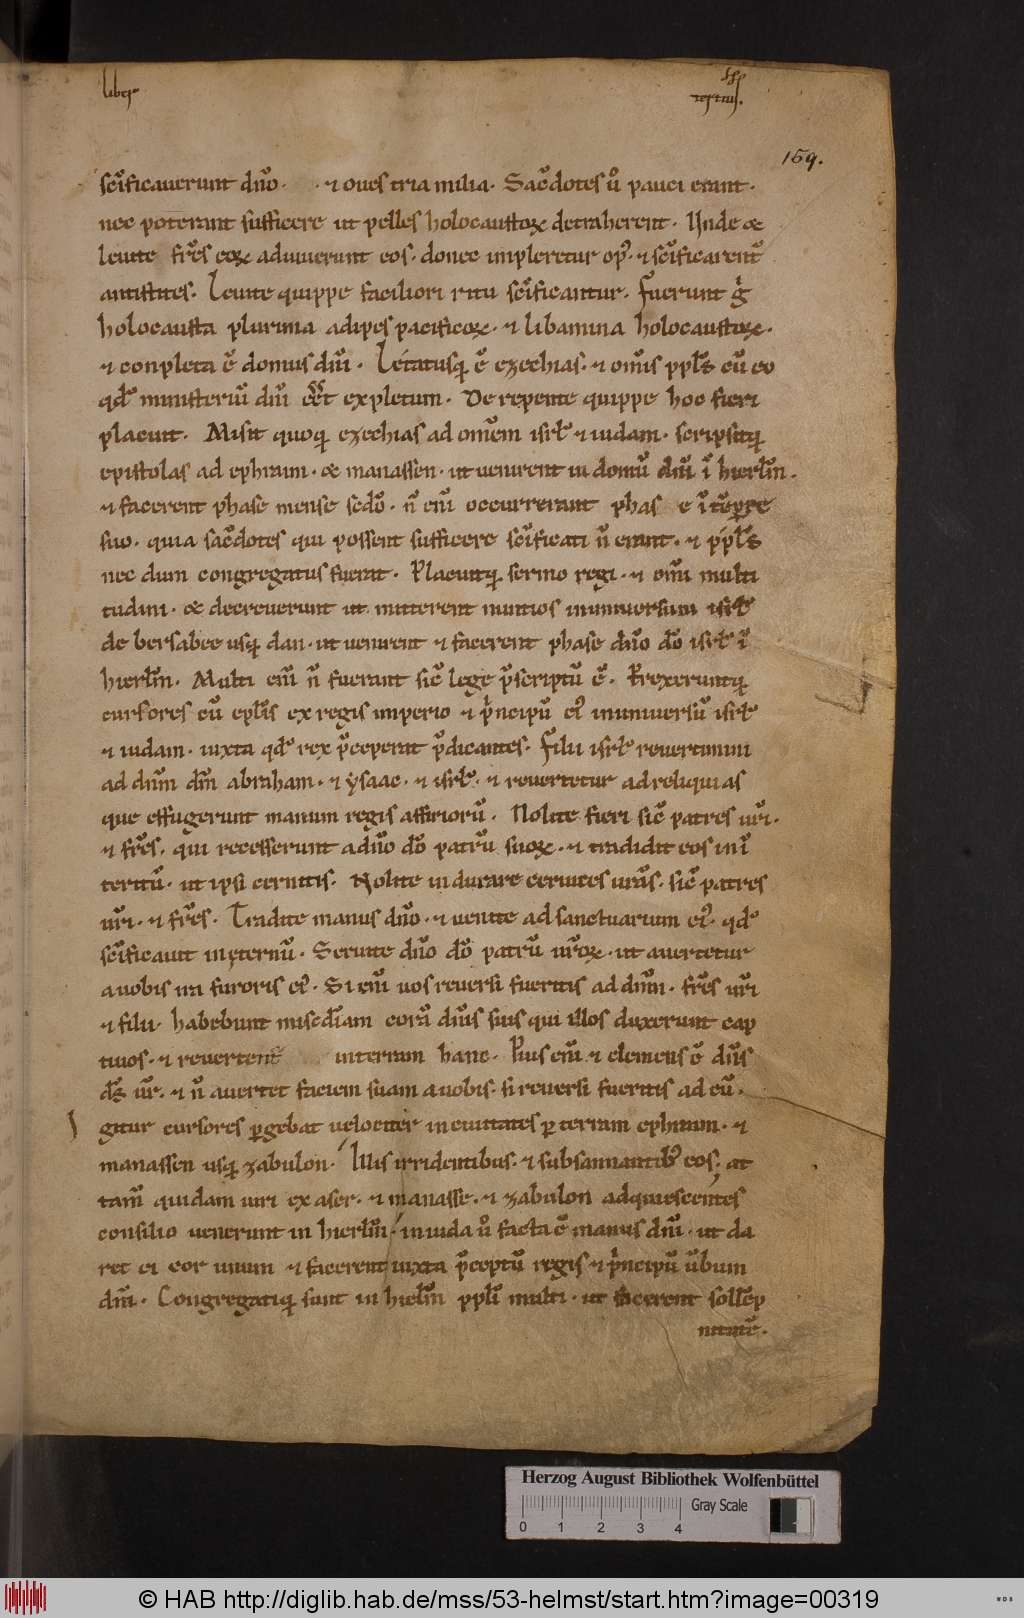 liber
tertius.
159.
sc̄ificaverunt dn̄o · ⁊ oves tria milia. Sac̄dotes u̇ pauci erant.
nec poterant sufficere ut pelles holocaustoꝝ detraherent. Unde &
levite fr̄es eoꝝ adiuverunt eos. donec impleretur opꝰ. ⁊ sc̄ificarent᷑
antistites. Levite quippe faciliori ritu sc̄ificantur. Fuerunt gͥ
holocausta plurima adipes pacificoꝝ. ⁊ libamina holocaustoꝝ.
⁊ conpleta ē domus dn̄i. Letatusq; ē ezechias. ⁊ om̄is ppl̄s eū eo
qd̄ ministeriū dn̄i eēt expletum. De repente quippe hoc fieri
placuit. Misit quoq; ezechias ad omēm isrl̄ ⁊ iudam. scripsitq;
epistolas ad ephraim. & manassen. ut venirent in domū dn̄i ī hierl̄m.
⁊ facerent phase mense sc̄do. n̄ eni̅ occurrerant phas e ī tēpore
suo. quia sac̄dotes qui possent sufficere sc̄ificati n̄ erant. ⁊ ppl̄s
nec dum congregatus fuerat. Placuitq; sermo regi. ⁊ om̄i multi
tudini. & decreverunt ut mitterent nuntios in universum isrl̄
de bersabee usq; dan. ut venirent ⁊ facerent phase dn̄o dō isrl̄ ī
hierl̄m. Multi eni̅ n̄ fuerant sic̄ lege p̄scriptū ē. Prexeruntq;
cursores cū epl̄is ex regis imperio ⁊ pͥncipū eiꝰ in universū isrl̄
⁊ iudam. iuxta qd̄ rex p̄ceperat p̄dicantes. Filii isrl̄ revertimini
ad dn̄m dm̄ abraham. ⁊ ẏsaac. ⁊ isrl̄. ⁊ revertetur ad reliquias
que effugerunt manum regis assiriorū. Nolite fieri sic̄ patres vr̄i.
⁊ fr̄es. qui recesserunt a dn̄o dō patrū suoꝝ. ⁊ tradidit eos in ī
teritū. ut ipsi cernitis. Nolite indurare cervices vr̄as. sic̄ patres
vr̄i. ⁊ fr̄es. Tradite manus dn̄o. ⁊ venite ad sanctuarium eiꝰ. qd̄
sc̄ificavit in ęternū. Servite dn̄o dō patrū vr̄oꝝ. ut avertetur
a vobis ira furoris eiꝰ. Si eni̅ vos reversi fueritis ad dn̄m. fr̄es vr̄i
⁊ filii. habebunt misc̄diam corā dn̄is suis qui illos duxerunt cap
tivos. ⁊ revertent᷑ in terram hanc. Pius eni̅ ⁊ clemens ē dn̄s
ds̄ vr̄. ⁊ n̄ avertet faciem suam a vobis. si reversi fueritis ad eū.
I gitur cursores ꝑgebat velociter in civitates ꝑ terram ephraim. ⁊
manassen usq; zabulon. Illis irridentibus. ⁊ subsannantibꝰ eos. at
tam̄ quidam viri ex aser. ⁊ manasse. ⁊ zabulon adquiescentes
consilio venerunt in hierl̄m. in iuda u̇ facta ē manus dn̄i. ut da
ret ei cor unum ⁊ facerent iuxta p̄ceptū regis ⁊ pͥncipū v̄bum
dn̄i. Congregatiq; sunt in hiel̄m ppl̄i multi. ut facerent sollēp
nitatē.
Herzog August Bibliothek Wolfenbüttel
Gray Scale
0 1 2 3 4
© HAB http://diglib.hab.de/mss/53-helmst/start.htm?image=00319